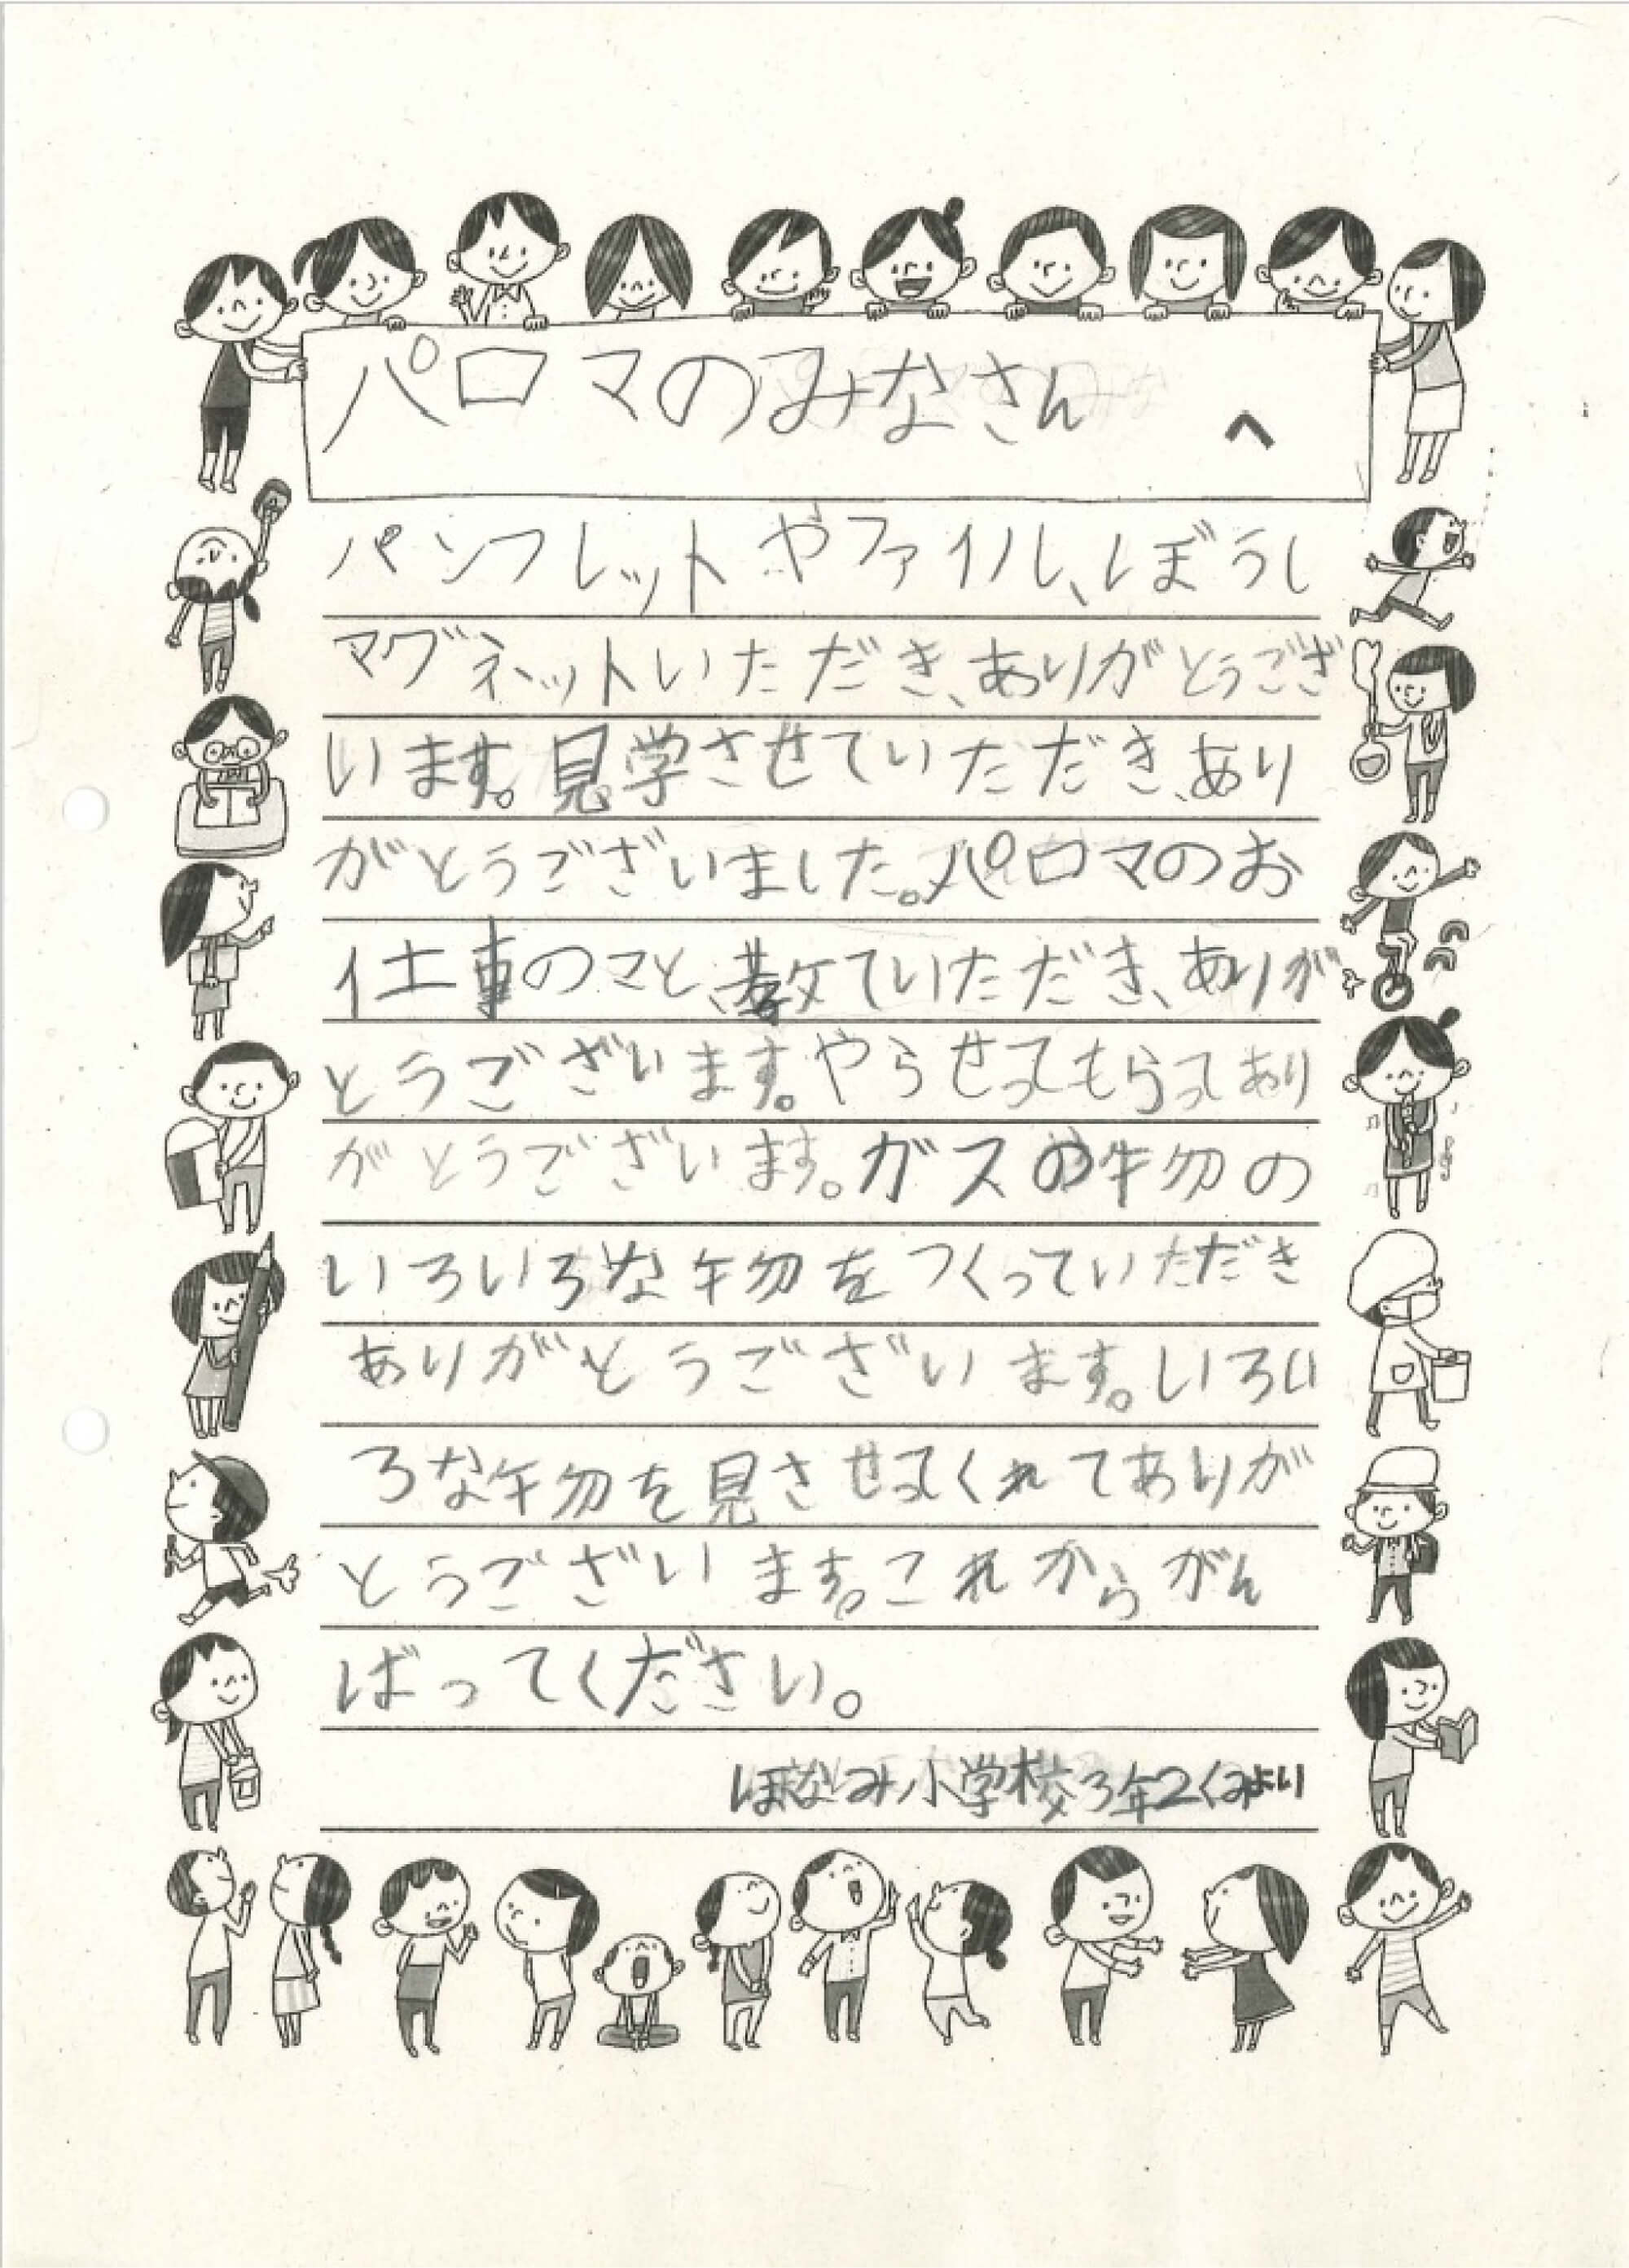 パロマのみなさん へ
パンフレットやファイル、ぼうし
マグネットいただき、ありがとうござ
います。見学させていただき、あり
がとうございました。パロマのお
仕事のこと、教ていただき、ありが
とうございます。やらせってもらってあり
がとうございます。ガスの物の
いろいろな物をつくっていただき
ありがとうございます。いろい
ろな物を見させってくれてありが
とうございます。これからがん
ばってください。
ほなみ小学校3年2くみより